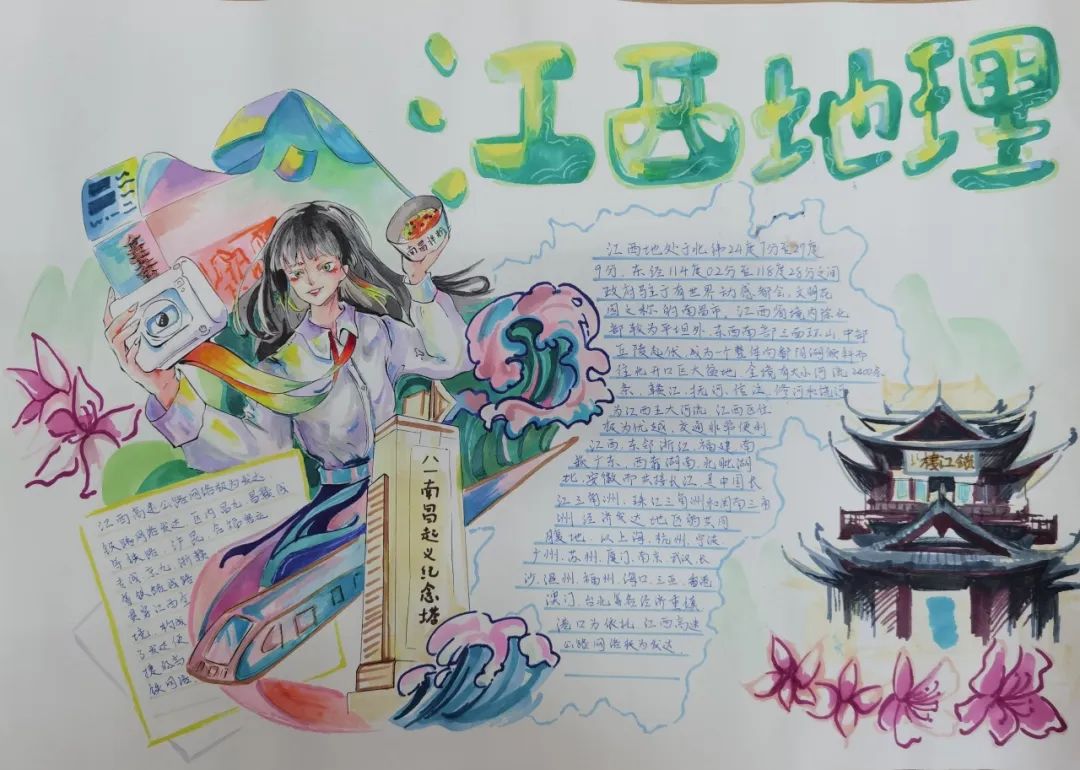 江西地理
南昌拌粉
江西地处于北纬24度7分至29度
9分,东经114度02分至118度28分之间
政府驻于有世界动感都会,文明花
园之称的南昌市,江西省境内除北
部较为平坦外,东西南部三面环山,中部
丘陵起伏,成为一个整体向鄱阳湖倾斜而
往北开口巨大盆地 全境有大小河流2400余
条,赣江,抚河,信江,修河和饶河
为江西五大河流 江西区位
极为优越,交通非常便利
江西,东邻浙江,福建,南
接广东,西靠湖南,北毗湖
北,安徽而共接长江,是中国长
江三角洲,珠江三角洲和闽南三角
洲 经济发达地区的共同
腹地,以上海,杭州,宁波
广州,苏州,厦门,南京,武汉,长
沙,温州,福州,海口,三亚,香港
澳门,台北等各经济重镇
港口为依托 江西高速
公路网络较为发达
鎖江樓
八一南昌起义纪念塔
江西高速公路网络较为发达
铁路网络发达,区内昌九,昌赣
等铁路,沪昆,合福
京九,浙赣
等铁路线路
贯穿江西全
境,构成
了发达便
捷的高
铁网络